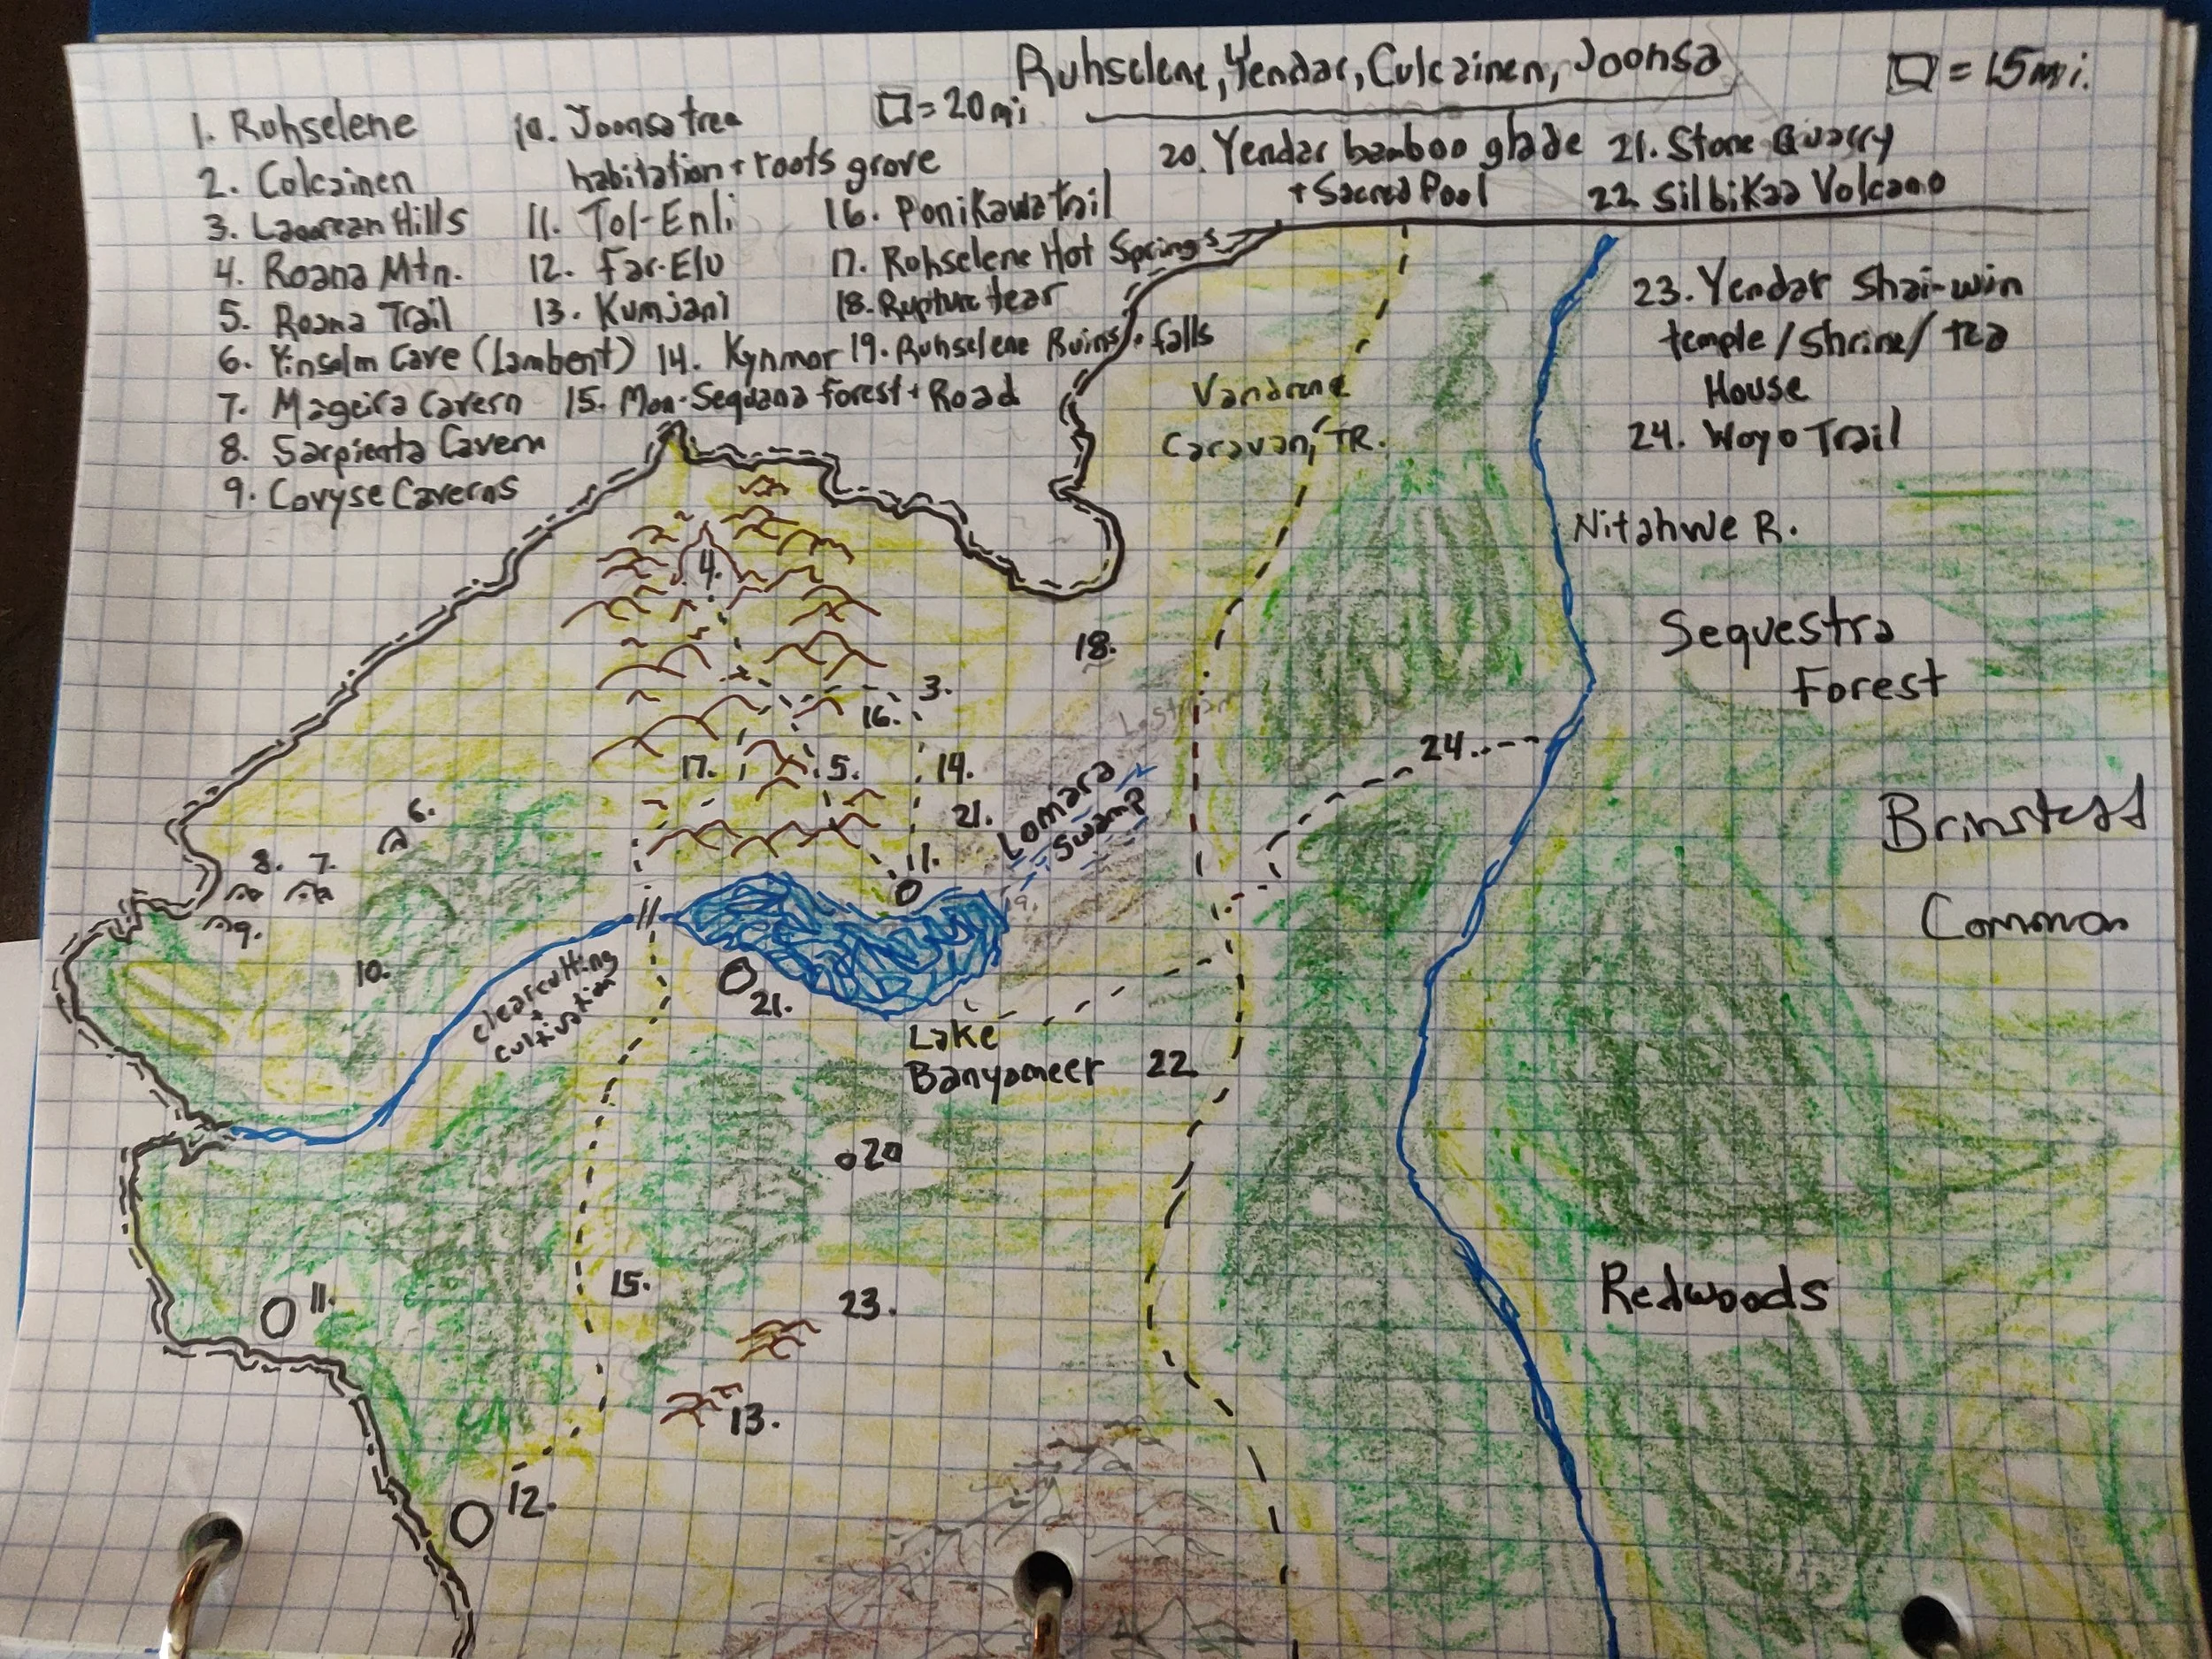 Ruhselene, Yendar, Culcainen, Joonsa
□ = 15mi.
□ = 20mi
1. Ruhselene
2. Colcainen
3. Laaorean Hills
4. Roana Mtn.
5. Roana Trail
6. Yinsalm Cave (Lambent)
7. Mageira Cavern
8. Sarpienta Cavern
9. Covyse Caverns
10. Joonsa tree
habitation + roots grove
11. Tol-Enli
12. Far-Elu
13. Kumjani
14. Kynmar
15. Mon-Sequana forest + Road
16. Ponikawa Trail
17. Ruhselene Hot Springs
18. Rupture tear
19. Ruhselene Ruins + falls
20. Yendar bamboo glade
+ Sacred Pool
21. Stone Quarry
22. Silbikaa Volcano
23. Yendar Shai-win
temple/Shrine/tea
House
24. Woyo Trail
Vandrene
Caravan TR.
Nitahwe R.
Sequestra
Forest
4.
18.
3.
16.
17.
5.
14.
24.
21.
Lomara
Swamp
Common
6.
8.
7.
1.
9.
19.
10.
clearcutting
+
cultivation
21.
Lake
Banyameer
22
20
15.
23.
11.
Redwoods
13.
12.